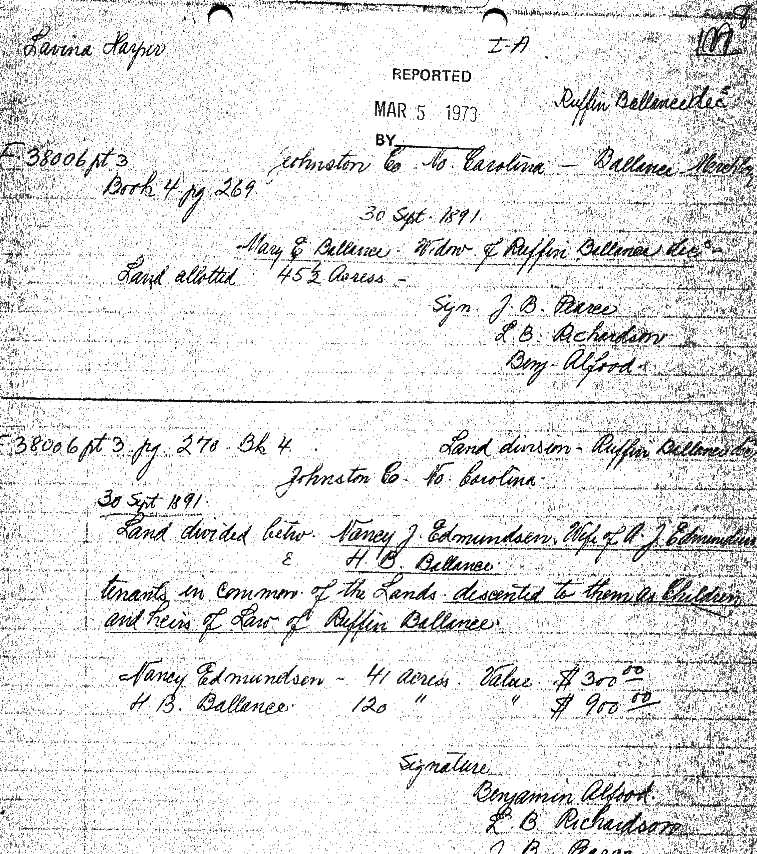 Lavina Harper
I-A
REPORTED
MAR 5 1973
BY
Ruffin Ballance dec^d
F 38006 pt 3
Johnston Co. No. Carolina — Ballance
Book 4 pg. 269
30 Sept. 1891
Mary E Ballance - Widow of Ruffin Ballance dec^d -
Land allotted 45½ Acress -
Sign. J. B. Pearce
L. B. Richardson
Benj - Alfood -
F 38006 pt 3 pg. 270 - Bk 4 Land division - Ruffin Ballance dec
Johnston Co. No. Carolina -
30 Sept 1891
Land divided betw. Nancy J. Edmundsen, Wife of A. J. Edmundsen
& H. B. Ballance
tenants in common of the Lands descented to them as Children
and heirs of Law of Ruffin Ballance
Nancy Edmundsen - 41 Acress. Value $ 300.00
H B. Ballance 120 " " $ 900.00
Signature
Benjamin Alfood
L B Richardson
J B Pearce